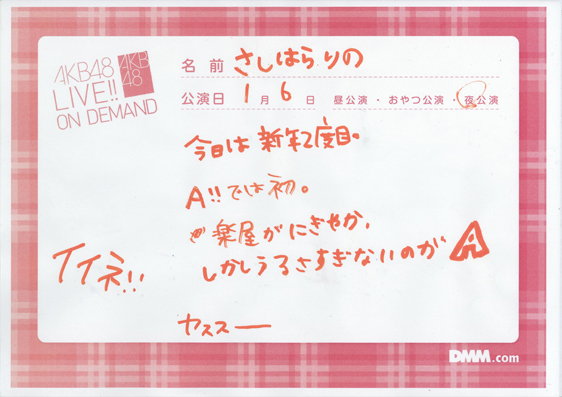 AKB48
LIVE!!
ON DEMAND
AKB
48
名前 さしはらりの
公演日 1月6日 昼公演・おやつ公演・夜公演
今日は新年2度目。
A!!では初。
楽屋がにぎやか、
しかしうるさすぎないのがA
イイネ!!
ヤススー
DMM.com